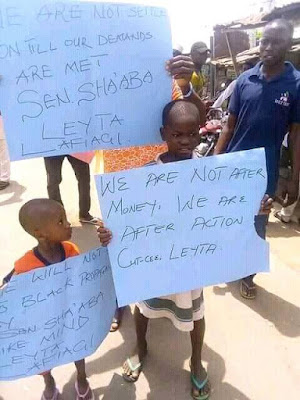 WE ARE NOT SETTLE
ON TILL OUR DEMANDS
ARE MET
SEN. SHA'ABA
LEYTA
LAFIAGI
WE ARE NOT AFTER
MONEY. WE ARE
AFTER ACTION
LEYTA
WILL NOT
BLACK
SEN. SHA'ABA
MIND
LEYTA
LAFIAGI